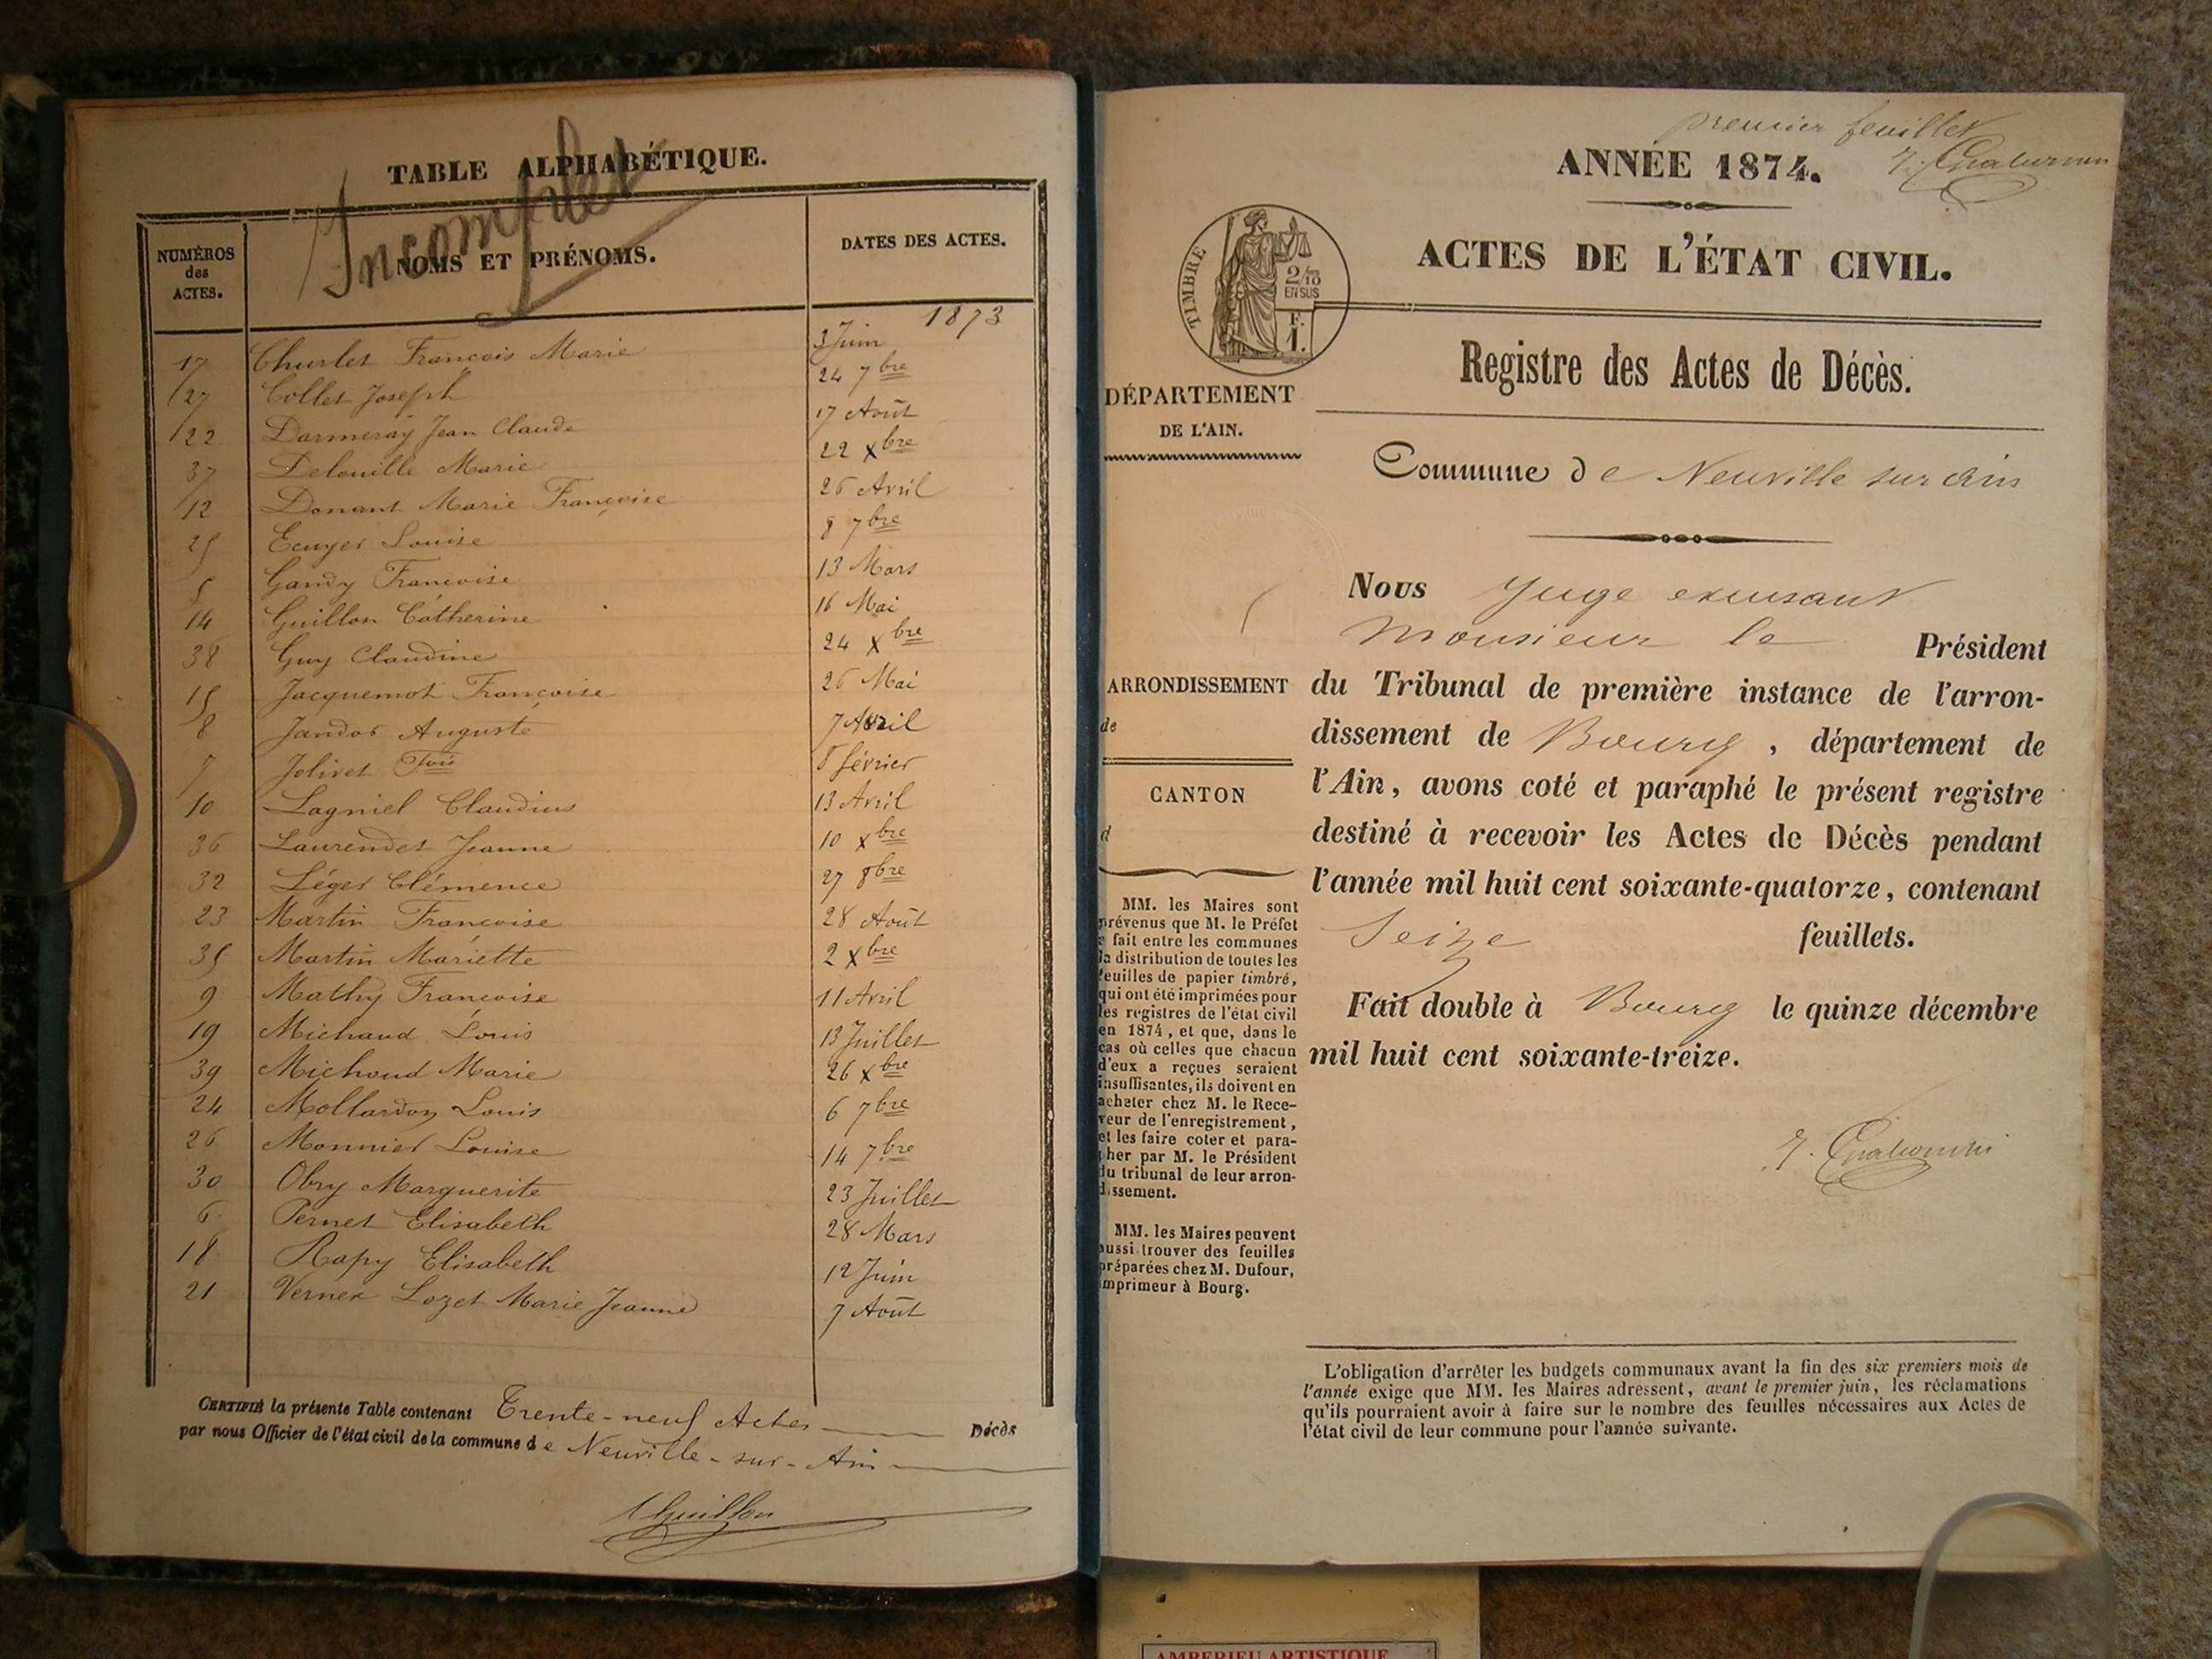 TABLE ALPHABÉTIQUE.
Incomplet
NUMÉROS des ACTES.
NOMS ET PRÉNOMS.
DATES DES ACTES.
1873
17 Churlet François Marie 3 Juin
27 Collet Joseph 24 7bre
22 Darmeray Jean Claude 17 Août
37 Delouille Marie 22 Xbre
12 Donant Marie Françoise 26 Avril
25 Ecuyer Louise 8 7bre
5 Gandy Françoise 13 Mars
14 Guillon Catherine 16 Mai
38 Guy Claudine 24 Xbre
15 Jacquemot Françoise 26 Mai
8 Jandos Auguste 7 Avril
7 Jolivet 8 février
10 Lagniel Claudius 13 Avril
36 Laurendet Jeanne 10 Xbre
32 Léger Clémence 27 8bre
23 Martin Françoise 28 Août
35 Martin Mariette 2 Xbre
9 Mathy Françoise 11 Avril
19 Michaud Louis 13 Juillet
39 Michoud Marie 26 Xbre
24 Mollardon Louis 6 7bre
26 Monnier Louise 14 7bre
30 Obry Marguerite 23 Juillet
6 Pernet Elisabeth 28 Mars
18 Rapy Elisabeth 12 Juin
21 Vernex Lozet Marie Jeanne 7 Août
CERTIFIÉ la présente Table contenant Trente-neuf Actes Décès
par nous Officier de l'état civil de la commune de Neuville-sur-Ain
Guillon
premier feuillet
ANNÉE 1874.
ACTES DE L'ÉTAT CIVIL.
TIMBRE
2/10
EN SUS
F.
1.
Registre des Actes de Décès.
DÉPARTEMENT
DE L'AIN.
Commune de Neuville sur ain
Nous Juge excusant
Monsieur le Président
du Tribunal de première instance de l'arron-
dissement de Bourg, département de
l'Ain, avons coté et paraphé le présent registre
destiné à recevoir les Actes de Décès pendant
l'année mil huit cent soixante-quatorze, contenant
Seize feuillets.
Fait double à Bourg le quinze décembre
mil huit cent soixante-treize.
ARRONDISSEMENT
de
CANTON
d
MM. les Maires sont
prévenus que M. le Préfet
a fait entre les communes
la distribution de toutes les
feuilles de papier timbré,
qui ont été imprimées pour
les registres de l'état civil
en 1874, et que, dans le
cas où celles que chacun
d'eux a reçues seraient
insuffisantes, ils doivent en
acheter chez M. le Rece-
veur de l'enregistrement,
et les faire coter et para-
pher par M. le Président
du tribunal de leur arron-
dissement.
MM. les Maires peuvent
aussi trouver des feuilles
préparées chez M. Dufour,
imprimeur à Bourg.
L'obligation d'arrêter les budgets communaux avant la fin des six premiers mois de
l'année exige que MM. les Maires adressent, avant le premier juin, les réclamations
qu'ils pourraient avoir à faire sur le nombre des feuilles nécessaires aux Actes de
l'état civil de leur commune pour l'année suivante.
AMBERIEU ARTISTIQUE